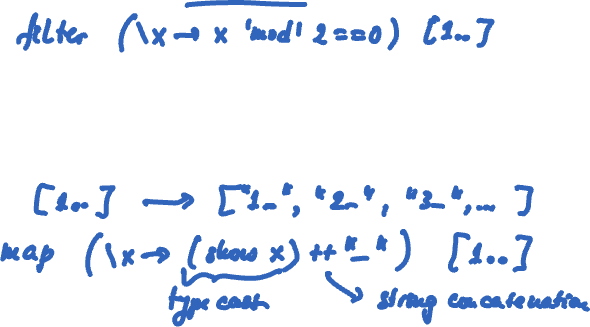 filter (\x → x 'mod' 2 == 0) [1..]
[1..] → ["1_", "2_", "3_", ... ]
map (\x → (show x) ++ "_") [1..]
type cast
string concatenation